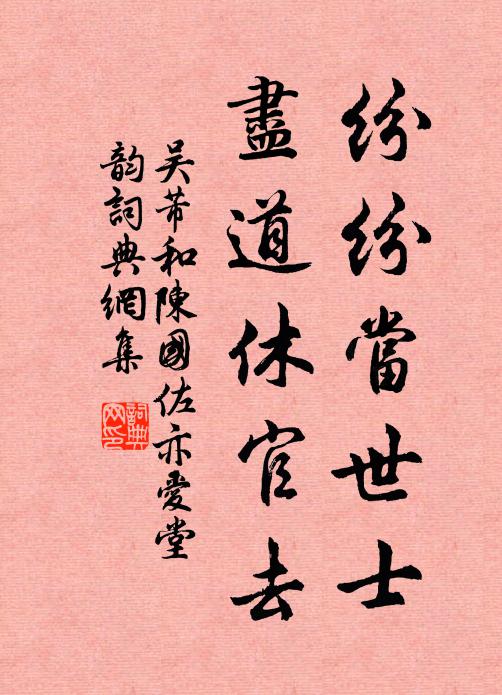 紛紛當世士
盡道休官去
吴芾和陳國佐亦愛堂
韵詞典網集
詞典
网印